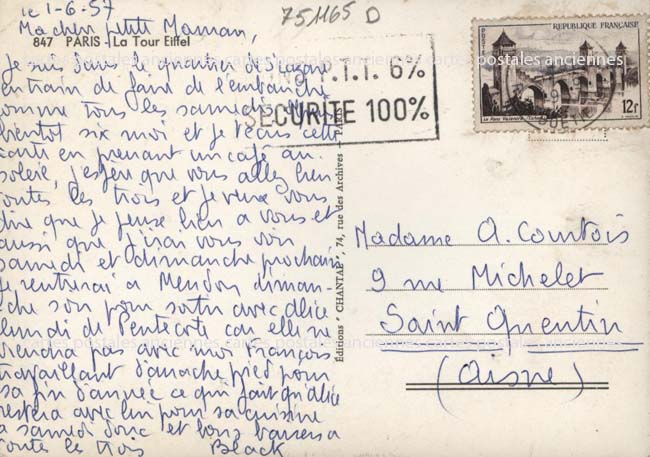 le 1-6-57
Ma chère petite Maman,
847 PARIS - La Tour Eiffel
Je suis dans le quartier St Lazare
en train de faire de l'embauche
comme tous les samedis
bientôt six mois et je t'écris cette
carte en prenant un café au
soleil, j'espère que vous allez bien
toutes les trois et je veux vous
dire que je pense bien à vous et
aussi que j'irai vous voir
samedi et dimanche prochain
Je rentrerai à Meudon diman-
che soir pour sortir avec Alice
lundi de Pentecôte car elle ne
viendra pas avec moi François
travaillant d'arrache pied pour
sa fin d'année ce qui fait qu'Alice
restera avec lui pour sa cuisine
à samedi donc et bons baisers à
toutes les trois Black
751165 D
T.I.I. 6%
SÉCURITÉ 100%
POSTES
RÉPUBLIQUE FRANÇAISE
Le Pont Valentré
12f
Éditions "CHANTAL", 74, rue des Archives - PARIS
Madame A. Courtois
9 rue Michelet
Saint Quentin
(Aisne)
cartes postales anciennes